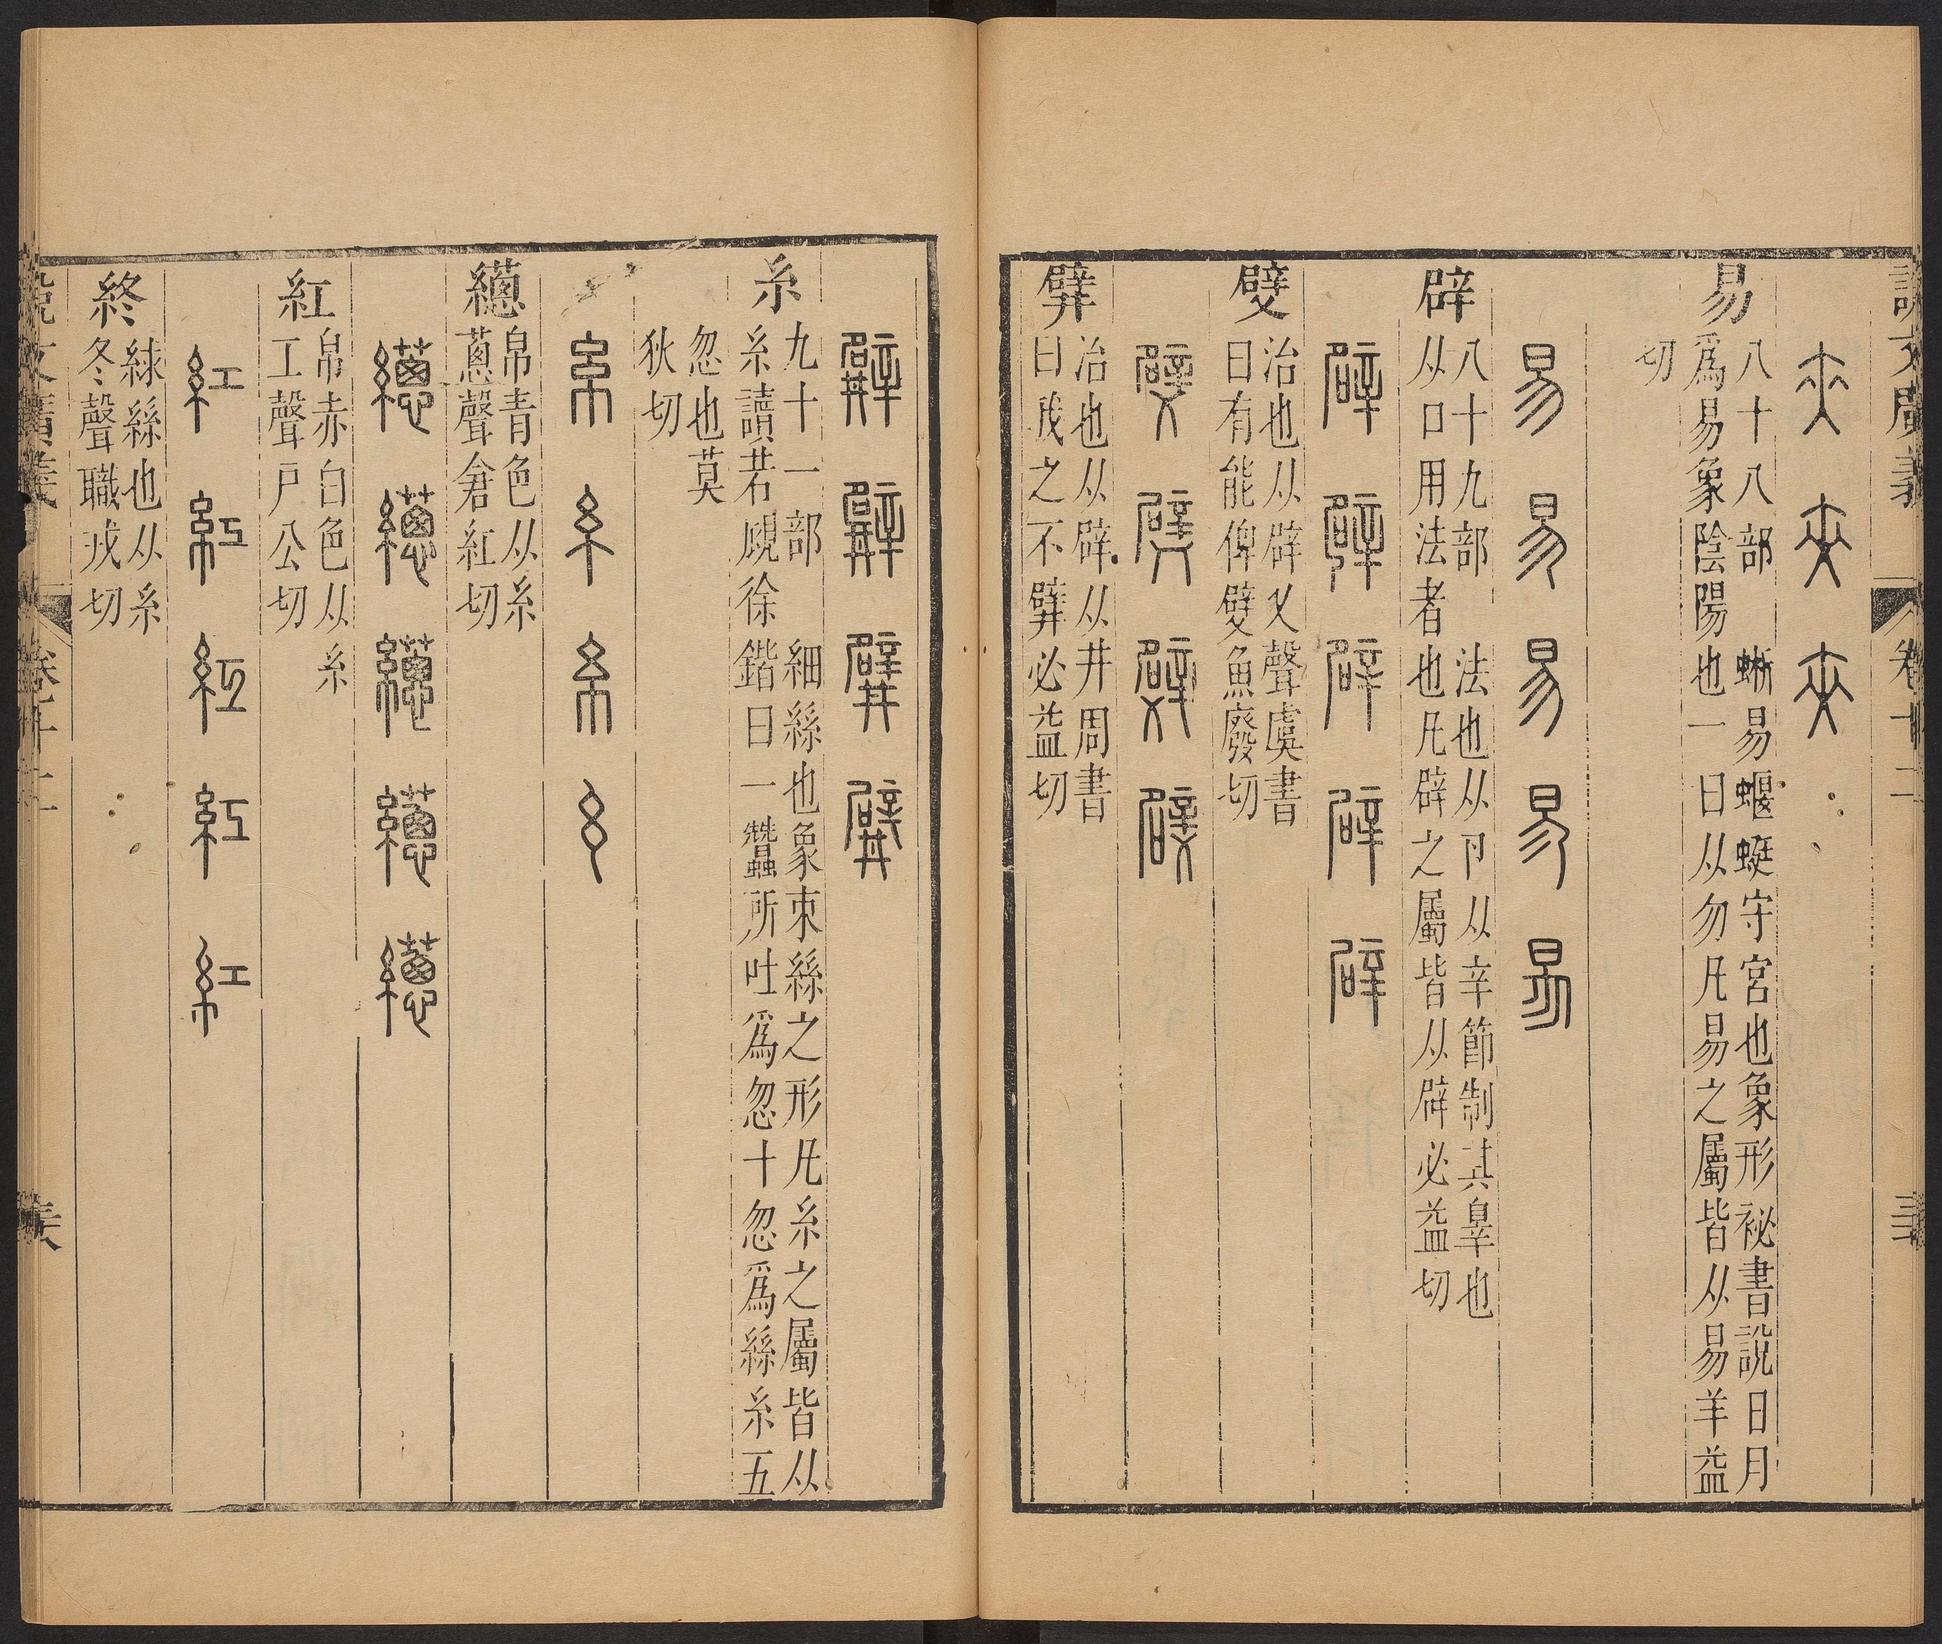 說文廣義
卷十二
夾夾夾
易
八十八部 蜥易蝘蜓守宮也象形祕書說日月
爲易象陰陽也一曰从勿凡易之屬皆从易羊益
切
易易易易易
辟
八十九部 法也从卪从辛節制其辠也
从口用法者也凡辟之屬皆从辟必益切
辟辟辟辟辟
嬖
治也从辟乂聲虞書
曰有能俾嬖魚廢切
𨐨
治也从辟从井周書
曰我之不𨐨必益切
糸
九十一部 細絲也象束絲之形凡糸之屬皆从
糸讀若覛徐鍇曰一蠶所吐爲忽十忽爲絲糸五
忽也莫
狄切
糸糸糸糸
繱
帛青色从糸
蔥聲倉紅切
繱繱繱繱繱
紅
帛赤白色从糸
工聲戶公切
紅紅紅紅紅
終
絿絲也从糸
冬聲職戎切
說文廣義